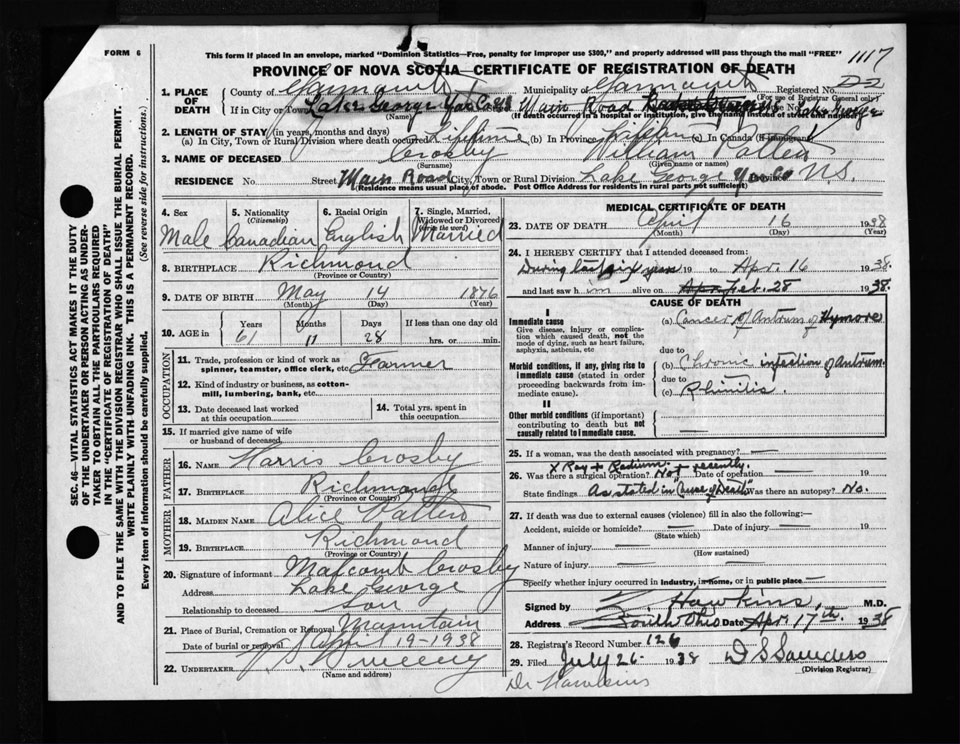 FORM 6
This form if placed in an envelope, marked "Dominion Statistics—Free, penalty for improper use $300," and properly addressed will pass through the mail "FREE"
1117
PROVINCE OF NOVA SCOTIA—CERTIFICATE OF REGISTRATION OF DEATH
1. PLACE OF DEATH
County of Yarmouth Municipality of Yarmouth Registered No.
(For use of Registrar General only)
If in City or Town Lake George Yar Co NS Main Road Lake George
(Name) (If death occurred in a hospital or institution, give the name instead of street and number)
2. LENGTH OF STAY (in years, months and days)
(a) In City, Town or Rural Division where death occurred Lifetime (b) In Province Lifetime (c) In Canada (if immigrant)
3. NAME OF DECEASED Crosby William Patten
(Surname) (Given name or names)
RESIDENCE No. Street Main Road City, Town or Rural Division Lake George Yar Co Province N.S.
(Residence means usual place of abode. Post Office Address for residents in rural parts not sufficient)
4. Sex Male
5. Nationality (Citizenship) Canadian
6. Racial Origin English
7. Single, Married, Widowed or Divorced (write the word) Married
8. BIRTHPLACE Richmond
(Province or Country)
9. DATE OF BIRTH May 14 1876
(Month) (Day) (Year)
10. AGE in Years Months Days If less than one day old
61 11 28 hrs. or min.
OCCUPATION
11. Trade, profession or kind of work as spinner, teamster, office clerk, etc. Farmer
12. Kind of industry or business, as cotton-mill, lumbering, bank, etc.
13. Date deceased last worked at this occupation
14. Total yrs. spent in this occupation
15. If married give name of wife or husband of deceased
FATHER
16. NAME Harris Crosby
17. BIRTHPLACE Richmond
(Province or Country)
MOTHER
18. MAIDEN NAME Alice Patten
19. BIRTHPLACE Richmond
(Province or Country)
20. Signature of informant Malcomb Crosby
Address Lake George
Relationship to deceased Son
21. Place of Burial, Cremation or Removal
Date of burial or removal April 19-1938
22. UNDERTAKER Sweeny
(Name and address)
MEDICAL CERTIFICATE OF DEATH
23. DATE OF DEATH April 16 1938
(Month) (Day) (Year)
24. I HEREBY CERTIFY that I attended deceased from:
During last six years 19 to Apr. 16 1938.
and last saw him alive on Apr Feb. 28 1938.
CAUSE OF DEATH
I
Immediate cause
Give disease, injury or complication which caused death, not the mode of dying, such as heart failure, asphyxia, asthenia, etc
(a) Cancer of Antrum of Hymore
due to
Morbid conditions, if any, giving rise to immediate cause (stated in order proceeding backwards from immediate cause).
(b) Chronic infection of Antrum
due to
(c) Rhinitis
II
Other morbid conditions (if important) contributing to death but not causally related to immediate cause.
25. If a woman, was the death associated with pregnancy? —
X Ray + Radium + recently.
26. Was there a surgical operation? No Date of operation — 19
State findings As stated in "Cause of Death" Was there an autopsy? No.
27. If death was due to external causes (violence) fill in also the following:—
Accident, suicide or homicide? — Date of injury — 19
(State which)
Manner of injury —
(How sustained)
Nature of injury —
Specify whether injury occurred in industry, in home, or in public place —
Signed by Hawkins, M.D.
Address South Ohio Date Apr. 17th. 1938
28. Registrar's Record Number 126
29. Filed July 26 1938 D S Saunders
(Division Registrar)
Dr Hawkins
SEC. 46—VITAL STATISTICS ACT MAKES IT THE DUTY OF THE UNDERTAKER OR PERSON ACTING AS UNDERTAKER TO OBTAIN ALL THE PARTICULARS REQUIRED IN THE "CERTIFICATE OF REGISTRATION OF DEATH"
AND TO FILE THE SAME WITH THE DIVISION REGISTRAR WHO SHALL ISSUE THE BURIAL PERMIT.
WRITE PLAINLY WITH UNFADING INK. THIS IS A PERMANENT RECORD.
Every item of information should be carefully supplied. (See reverse side for instructions.)